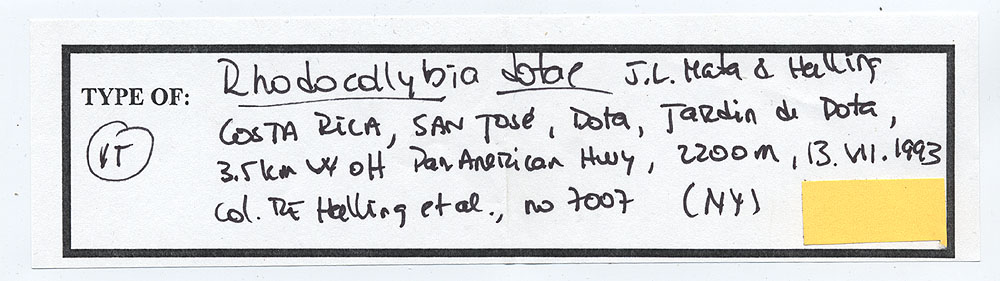 Rhodocollybia dotae J.L. Mata & Halling
TYPE OF:
COSTA RICA, SAN JOSÉ, Dota, Jardin de Dota,
3.5km W off PanAmerican Hwy, 2200m, 13.VII.1993
col. RE Halling et al., no 7007 (NY)